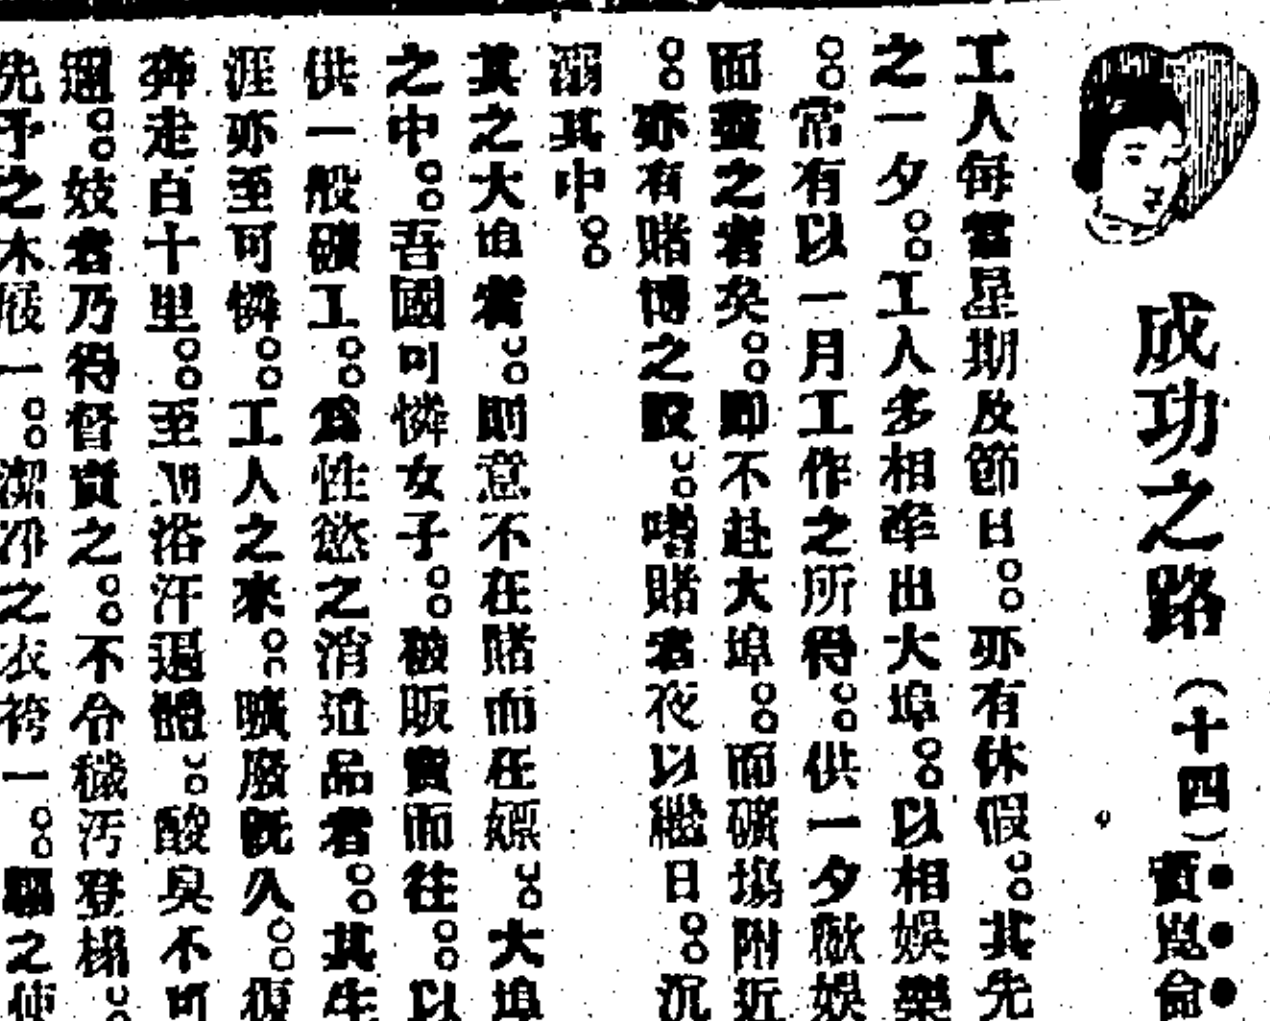 成功之路（十四）賣崑侖
工人每當星期及節日。亦有休假。其先
之一夕。工人多相率出大埠。以相娛樂
。常有以一月工作之所得。供一夕歡娛
而盡之者矣。即不赴大埠。而礦塲附近
。亦有賭博之設。嗜賭者夜以繼日。沉
溺其中。
其之大埠者。則意不在賭而在嫖。大埠
之中。吾國可憐女子。被販賣而往。以
供一般礦工。爲性慾之消遣品者。其生
涯亦至可憐。工人之來。曠廢既久。復
奔走百十里。至則浴汗遍體。酸臭不可
邇。妓者乃得督責之。不令穢汚登榻。
先予之木屐一。潔淨之衣袴一。驅之使